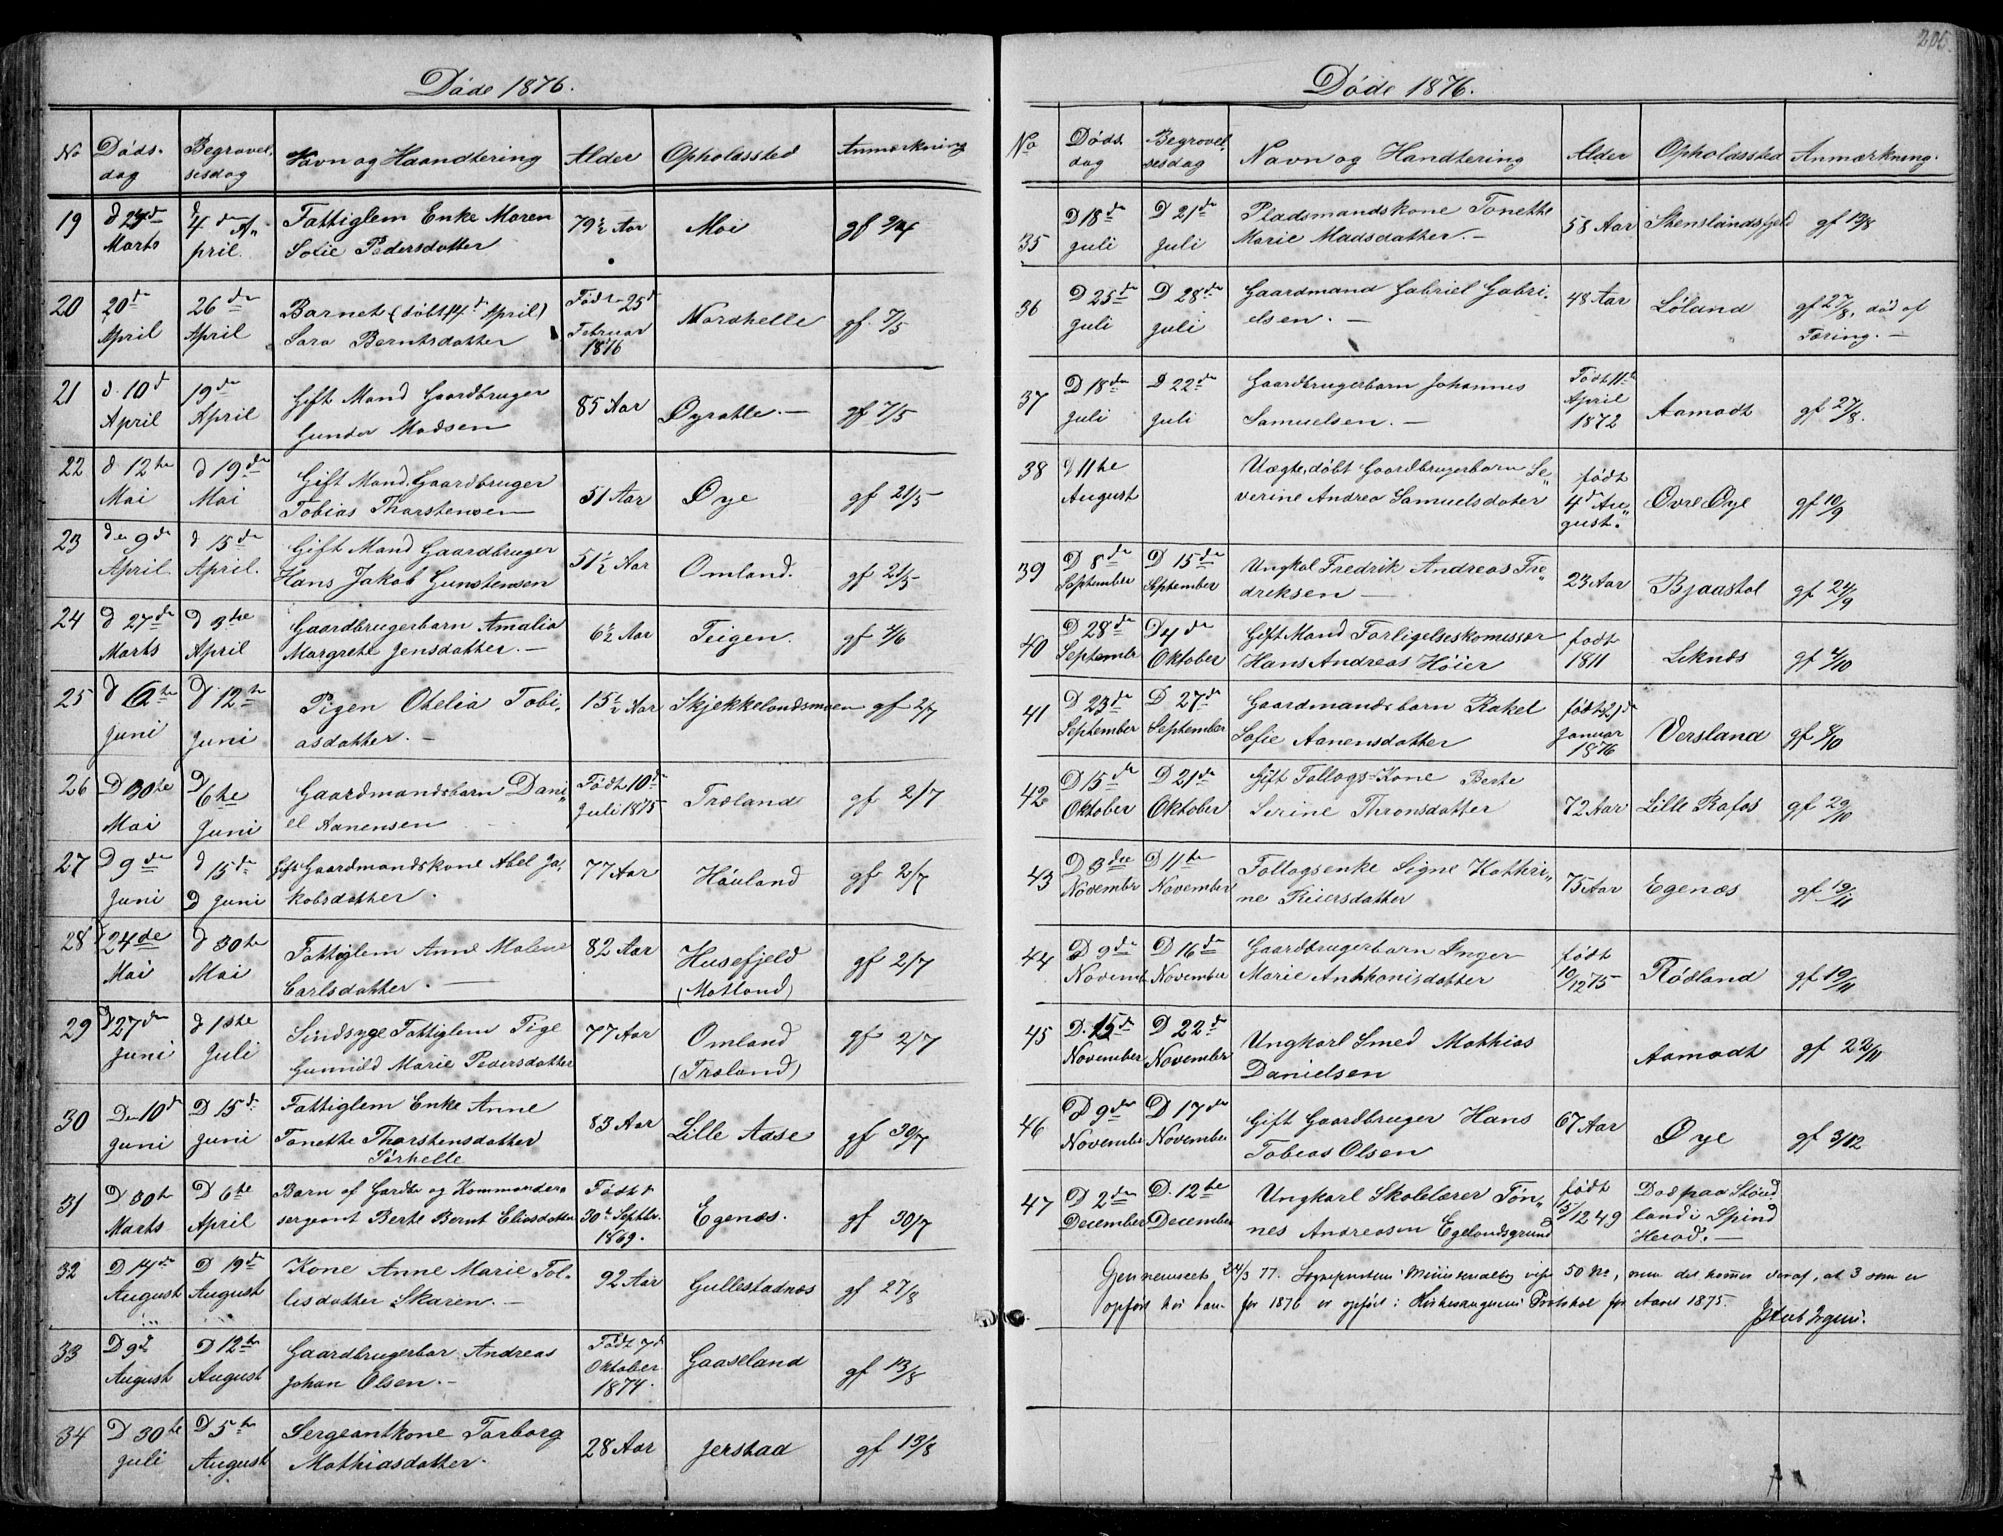 206.
Døde 1876.
No Døds-dag Begravelsesdag Navn og Haandtering Alder Opholdssted Anmærkning
19 d 24de Marts d 4de April Fattiglem Enke Maren Sofie Pedersdatter 79½ Aar Moi gf
20 20de April 26de April Barnet (døbt 14d April) Sara Berntsdatter Født 25d Februar 1876 Nordhelle gf. 7/5
21 d. 10d April 19de April Gift Mand Gaardbruger Gunder Madsen 85 Aar Dyratle.— gf 7/5
22 d 12te Mai d 19de Mai Gift Mand Gaardbruger Tobias Thorstensen 51 Aar Øye gf 21/5
23 den 9de April. d 15de April. Gift Mand Gaardbruger Hans Jakob Gunstensen 51½ Aar Omland. gf 21/5
24 d 27de Marts d 9de April Gaardbrugerbarn Amalia Margrete Jensdatter.— 6½ Aar Teigen. gf 4/6
25 d 6te Juni d. 12te Juni Pigen Otelia Tobiasdatter.— 15½ Aar Skjekkelandsmoen gf 2/7
26 D 30te Mai D 6te Juni Gaardmandsbarn Daniel Aanensen Født 10de Juli 1875 Træland gf 2/7
27 D 9de Juni d 15de Juni Gift Gaardmandskone Abel Jakobsdatter. 77 Aar Høuland gf 2/7
28 d 24de Mai d 30te Mai Fattiglem Anne Malene Carlsdatter.— 82 Aar Husefjeld (Motland) gf 2/7
29 D 27de Juni d 1ste Juli Sindsyge Fattiglem Pige Gunnild Marie Pedersdatter 77 Aar Omland (Træland) gf 2/7
30 Den 10d Juni D 15d Juni Fattiglem Enke Anne Tonette Thorstensdatter Sørhelle 83 Aar Lille Aase gf 30/7
31 D 30te Marts D 6te April Barn af Gardbr og Kommandersergeant Berte Bernt Eliasdatter Født 30te Septbr. 1869. Egenæs. gf 30/7
32 D 14de August D 19de August Kone Anne Marie Tollisdatter Skaren.— 92 Aar Gullestadnæs gf 27/8
33 D 9d August D 12te August Gaardbrugerbar Andreas Johan Olsen.— Født 7d Oktober 1874. Gaaseland gf 13/8
34 D 30te Juli D 5te August Sergeantkone Torborg Mathiasdatter. 28 Aar Jerstad gf 13/8
Døde 1876.
No Døds dag Begravelsesdag Navn og Handtering Alder Opholdssted Anmærkning.
35 D 18de Juli D 21de Juli Pladsmandskone Tonette Marie Madsdatter.— 58 Aar Stenslandsfjeld gf 13/8
36 D 25de Juli D 28de Juli Gaardmand Gabriel Gabrielsen.— 48 Aar Løland gf 27/8. død af Tæring.—
37 D 18de Juli D 22de Juli Gaardbrugerbarn Johannes Samuelsen.— Født 11te April 1872 Aamodt gf 27/8.
38 d 11te August Uægte, døbt Gaardbrugerbarn Severine Andrea Samuelsdater født 4de August. Øvre Øye gf 10/9
39 D 8de September D 15de September Ungkal Fredrik Andreas Fredriksen— 23 Aar Bjaastol gf 24/9
40 D 28de Septembr D 4de Oktober Gift Mand Forligelseskomissær Hans Andreas Høier født 1811 Leknæs gf 4/10
41 D 23de September D 27de September Gaardmandsbarn Rakel Sofie Aanensdatter født 21d Januar 1876 Versland gf 8/10
42 D 15de Oktober D 21de Oktober Gift Follogs-Kone Berte Serine Thronsdatter 72 Aar Lille Rafos gf 29/10
43 D 3die Novembr D 11te November Follogsenke Signe Kathrine Reiersdatter 75 Aar Egenæs gf 19/11
44 D 9de Novemb D 16de November Gaardbrugerbarn Inger Marie Anthonisdatter født 10/12 75 Rødland gf 19/11
45 D. 15d November D 22de November Ungkarl Smed Mathias Danielsen Aamodt gf 22/11
46 D 9de November D 17de November Gift Gaardbruger Hans Tobias Olsen 67 Aar Øye gf 3/12
47 D 2den December D. 12te December Ungkarl Skolelærer Tønnes Andreasen Egelandsgrund født 15/12 49 Død paa Støudland i Spind Herad.—
Gjennemseet 24/3 77. Sognepræstens Ministerialbog viser 50 No, men det kommer deraf, at 3 som er
opført hos ham for 1876 er opført i Kirkesangerens Protokol for Aaret 1875.